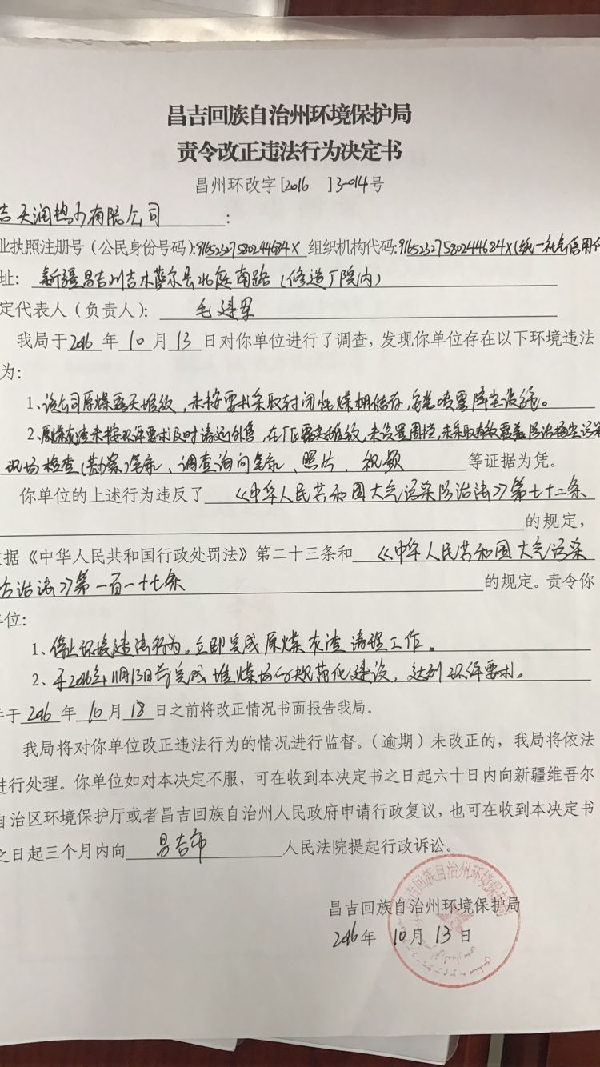 昌吉回族自治州环境保护局
责令改正违法行为决定书
昌州环改字[2016 ]3-014号
吉天润热力有限公司 :
业执照注册号(公民身份号码): 组织机构代码:
址: 新疆昌吉州吉木萨尔县北庭南路(修造厂院内)
定代表人(负责人): 毛
我局于2016年10月13日对你单位进行了调查,发现你单位存在以下环境违法
为:
1、该公司原煤露天堆放,未按要求采取封闭性煤棚储存,喷雾降尘设施。
2、未按环保要求及时清运外售,在厂区露天堆放,未设置围挡,未采取
现场检查(勘察)笔录,调查询问笔录,照片,视频 等证据为凭。
你单位的上述行为违反了 《中华人民共和国大气污染防治法》第七十二条
的规定,
据《中华人民共和国行政处罚法》第二十三条和 《中华人民共和国大气污染
防治法》第一百一十七条 的规定。责令你
单位:
1、停止环境违法行为,立即完成原煤灰渣清理工作。
2、于2016年11月13日前完成堆煤场的规范化建设,达到环保要求。
于2016年10月18日之前将改正情况书面报告我局。
我局将对你单位改正违法行为的情况进行监督。(逾期)未改正的,我局将依法
进行处理。你单位如对本决定不服,可在收到本决定书之日起六十日内向新疆维吾尔
自治区环境保护厅或者昌吉回族自治州人民政府申请行政复议,也可在收到本决定书
之日起三个月内向 昌吉市 人民法院提起行政诉讼。
昌吉回族自治州环境保护局
2016年 10月 13日